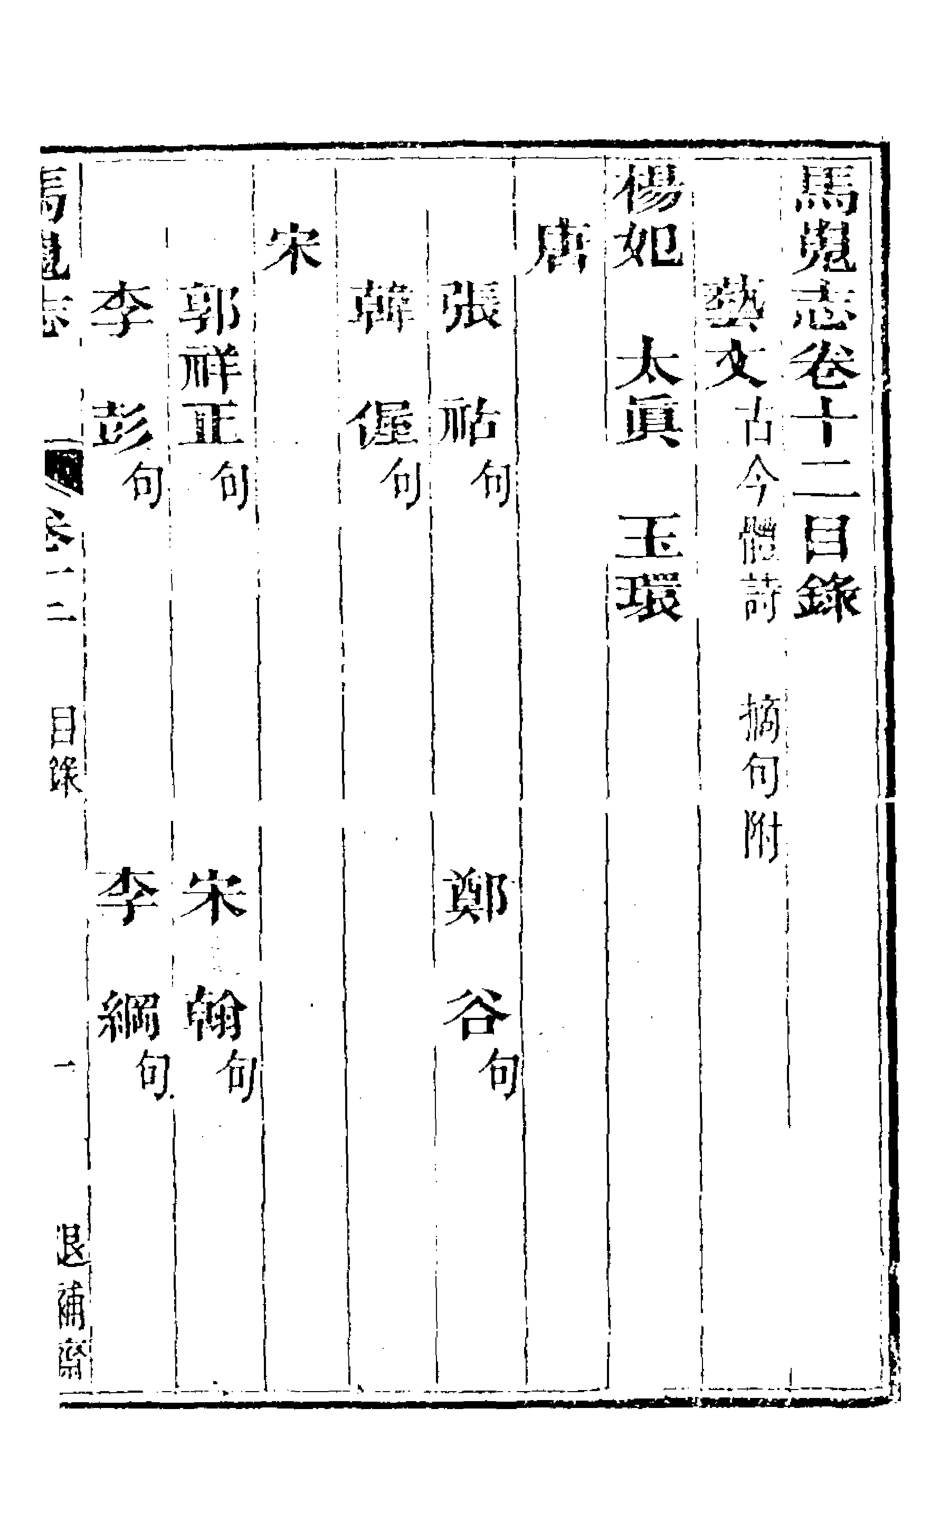 馬嵬志卷十二目錄
藝文 古今體詩 摘句附
楊妃 太眞 玉環
唐
張祜句 鄭谷句
韓偓句
宋
郭祥正句 宋翰句
李彭句 李綱句
馬嵬志 卷十二 目錄 一 退補齋